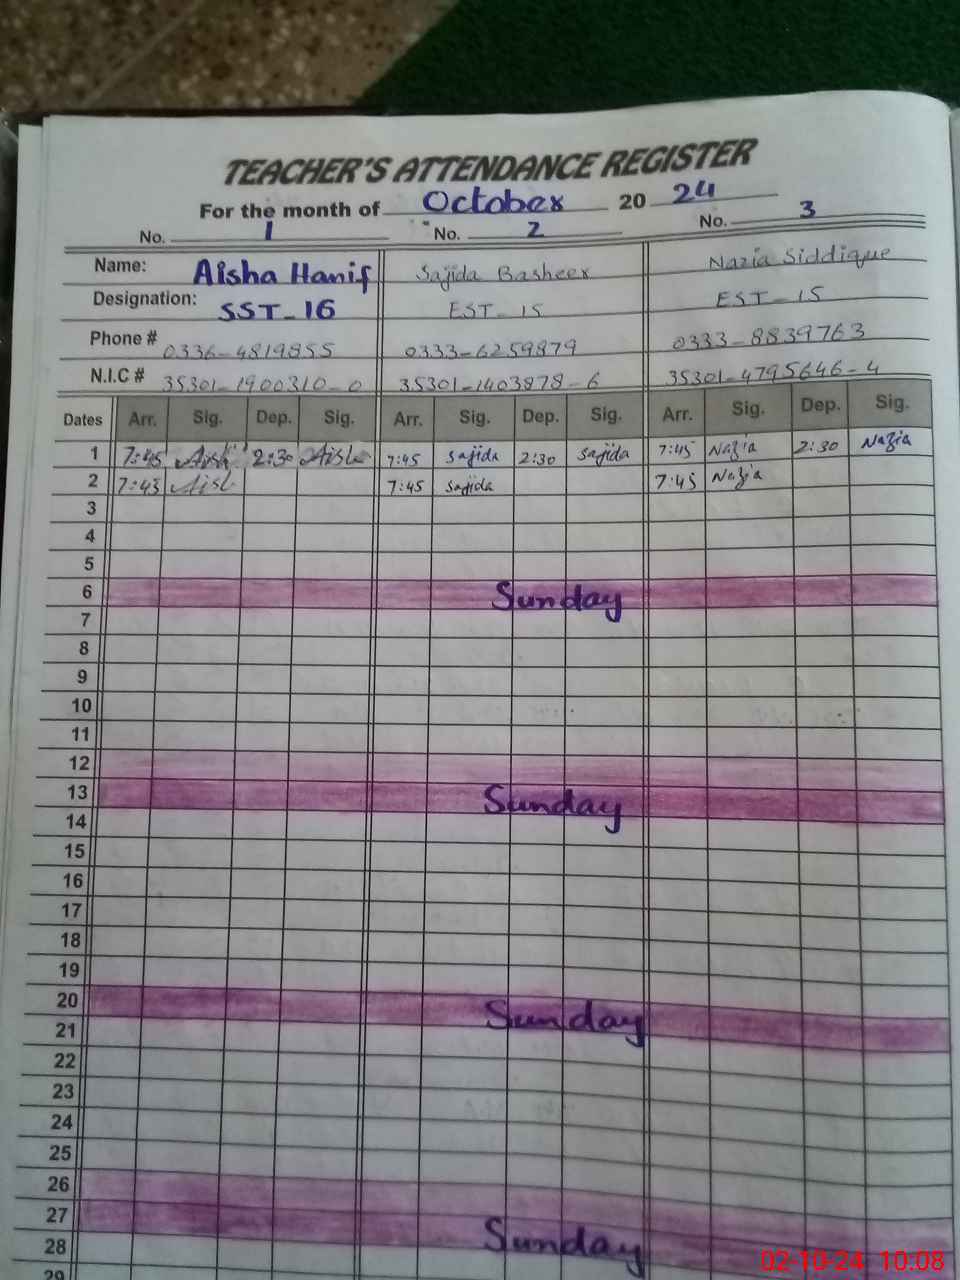 TEACHER'S ATTENDANCE REGISTER
For the month of October 20 24
No. 1 No. 2 No. 3
Name: Aisha Hanif Sajida Basheer Nazia Siddique
Designation: SST-16 EST-15 EST-15
Phone # 0336-4819855 0333-6259879 0333-8839763
N.I.C # 35301-1900310-0 35301-1403878-6 35301-4795646-4
Dates Arr. Sig. Dep. Sig. Arr. Sig. Dep. Sig. Arr. Sig. Dep. Sig.
1 7:45 Aish 2:30 Aish 7:45 Sajida 2:30 Sajida 7:45 Nazia 2:30 Nazia
2 7:45 Aish 7:45 Sajida 7:45 Nazia
3
4
5
6 Sunday
7
8
9
10
11
12
13 Sunday
14
15
16
17
18
19
20 Sunday
21
22
23
24
25
26
27 Sunday
28
29
02-10-24 10:08